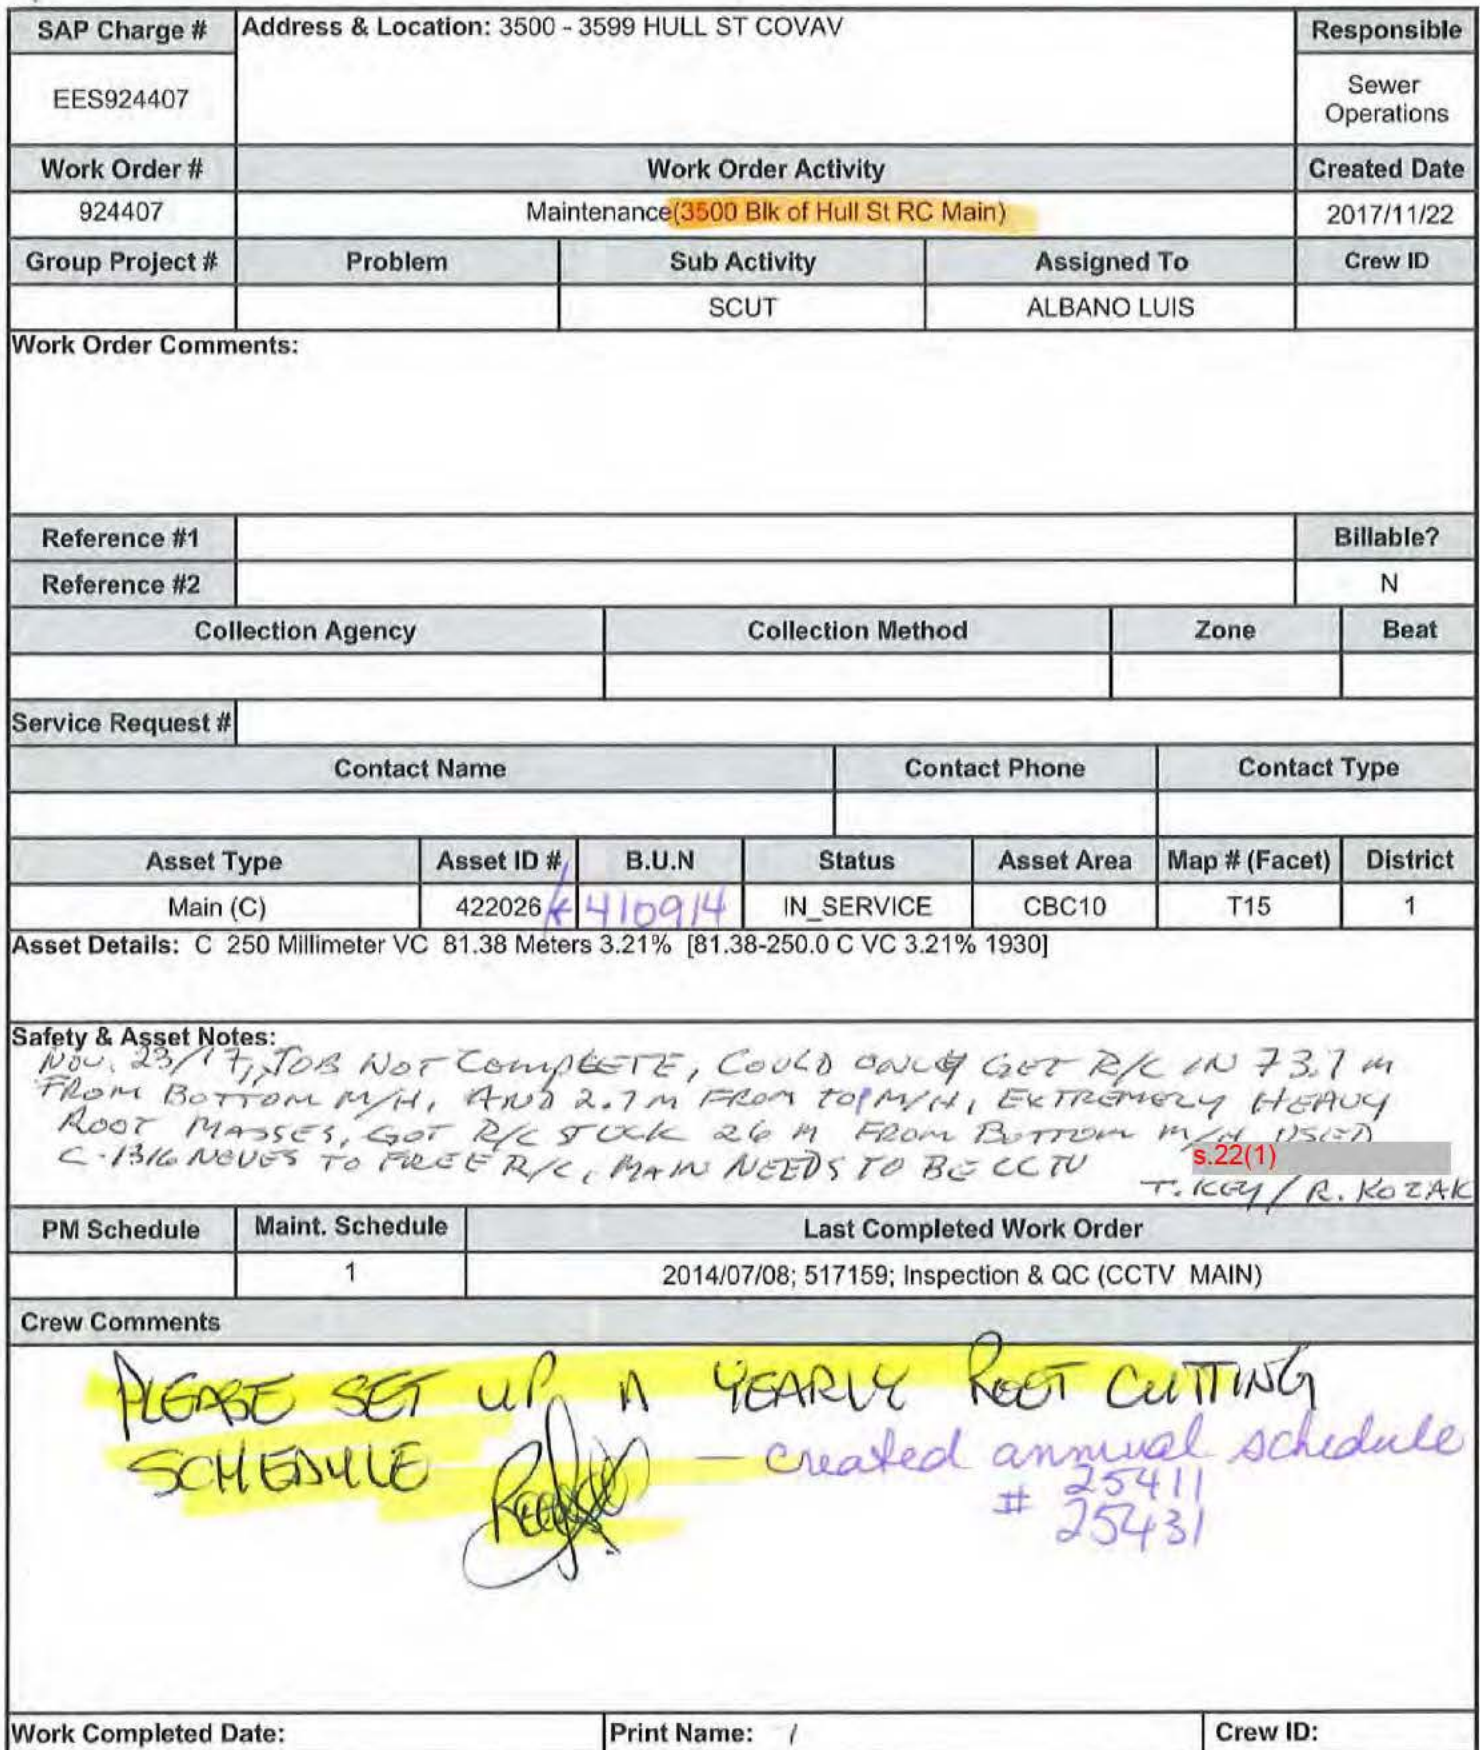 SAP Charge # Address & Location: 3500 - 3599 HULL ST COVAV Responsible
EES924407 Sewer Operations
Work Order # Work Order Activity Created Date
924407 Maintenance(3500 Blk of Hull St RC Main) 2017/11/22
Group Project # Problem Sub Activity Assigned To Crew ID
SCUT ALBANO LUIS
Work Order Comments:
Reference #1 Billable?
Reference #2 N
Collection Agency Collection Method Zone Beat
Service Request #
Contact Name Contact Phone Contact Type
Asset Type Asset ID # B.U.N Status Asset Area Map # (Facet) District
Main (C) 422026 & 410914 IN_SERVICE CBC10 T15 1
Asset Details: C 250 Millimeter VC 81.38 Meters 3.21% [81.38-250.0 C VC 3.21% 1930]
Safety & Asset Notes:
NOV. 23/17, JOB NOT COMPLETE, COULD ONLY GET R/C IN 73.7 m
FROM BOTTOM M/H, AND 2.7 M FROM TOP M/H, EXTREMELY HEAVY
ROOT MASSES, GOT R/C STUCK 26 M FROM BOTTOM M/H USED
C-1316 NEVES TO FREE R/C, MAIN NEEDS TO BE CCTV s.22(1)
T. KEY / R. KOZAK
PM Schedule Maint. Schedule Last Completed Work Order
1 2014/07/08; 517159; Inspection & QC (CCTV MAIN)
Crew Comments
PLEASE SET UP A YEARLY ROOT CUTTING
SCHEDULE - created annual schedule
# 25411
25431
Work Completed Date: Print Name: Crew ID: